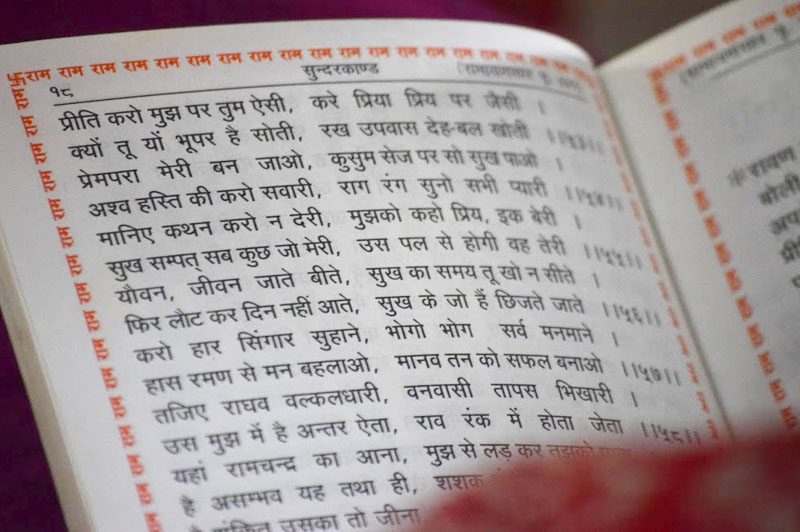 राम राम राम राम राम राम राम राम राम राम राम राम राम राम राम राम
सुन्दरकाण्ड
१८
प्रीति करो मुझ पर तुम ऐसी, करे प्रिया प्रिय पर जैसी ।
क्यों तू यों भूपर है सोती, रख उपवास देह-बल खोती ।।५३।।
प्रेमपरा मेरी बन जाओ, कुसुम सेज पर सो सुख पाओ ।
अश्व हस्ति की करो सवारी, राग रंग सुनो सभी प्यारी ।।५४।।
मानिए कथन करो न देरी, मुझको कहो प्रिय, इक बेरी ।
सुख सम्पत् सब कुछ जो मेरी, उस पल से होगी वह तेरी ।।५५।।
यौवन, जीवन जाते बीते, सुख का समय तू खो न सीते ।
फिर लौट कर दिन नहीं आते, सुख के जो हैं छिजते जाते ।।५६।।
करो हार सिंगार सुहाने, भोगो भोग सर्व मनमाने ।
हास रमण से मन बहलाओ, मानव तन को सफल बनाओ ।।५७।।
तजिए राघव वल्कलधारी, वनवासी तापस भिखारी ।
उस मुझ में है अन्तर ऐता, राव रंक में होता जेता ।।५८।।
यहां रामचन्द्र का आना, मुझ से लड़ कर तुझको
है असम्भव यह तथा ही, शशक
उसका तो जीना
रावण
बोली